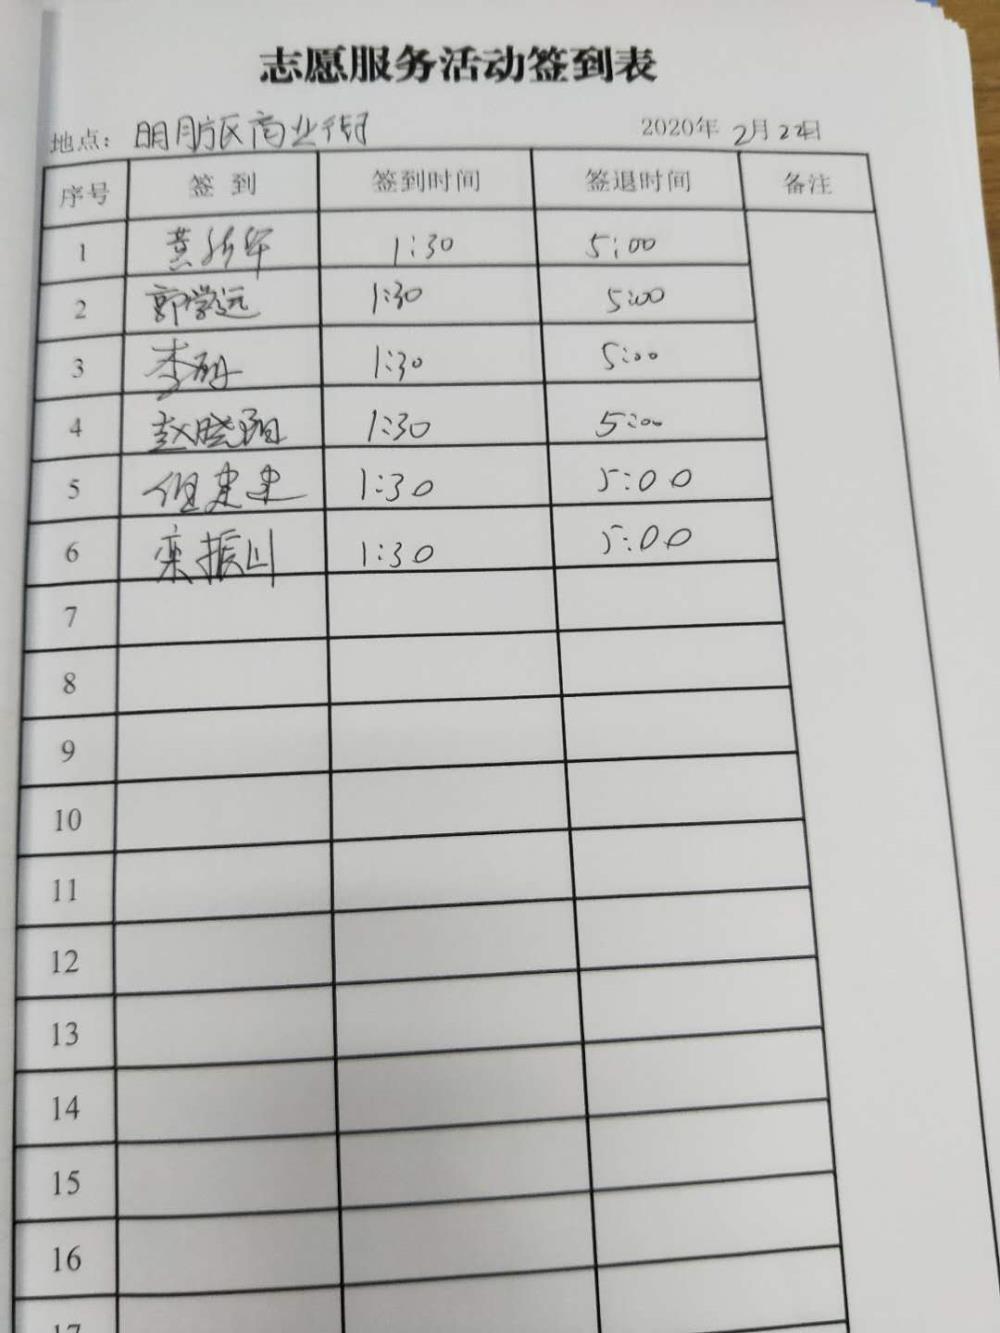 志愿服务活动签到表
地点：明月旅区商业街 2020年 2月22日
序号 签 到 签到时间 签退时间 备注
1 黄 1:30 5:00
2 郭学远 1:30 5:00
3 李 1:30 5:00
4 赵晓阳 1:30 5:00
5 但建 1:30 5:00
6 栾振川 1:30 5:00
7
8
9
10
11
12
13
14
15
16
17